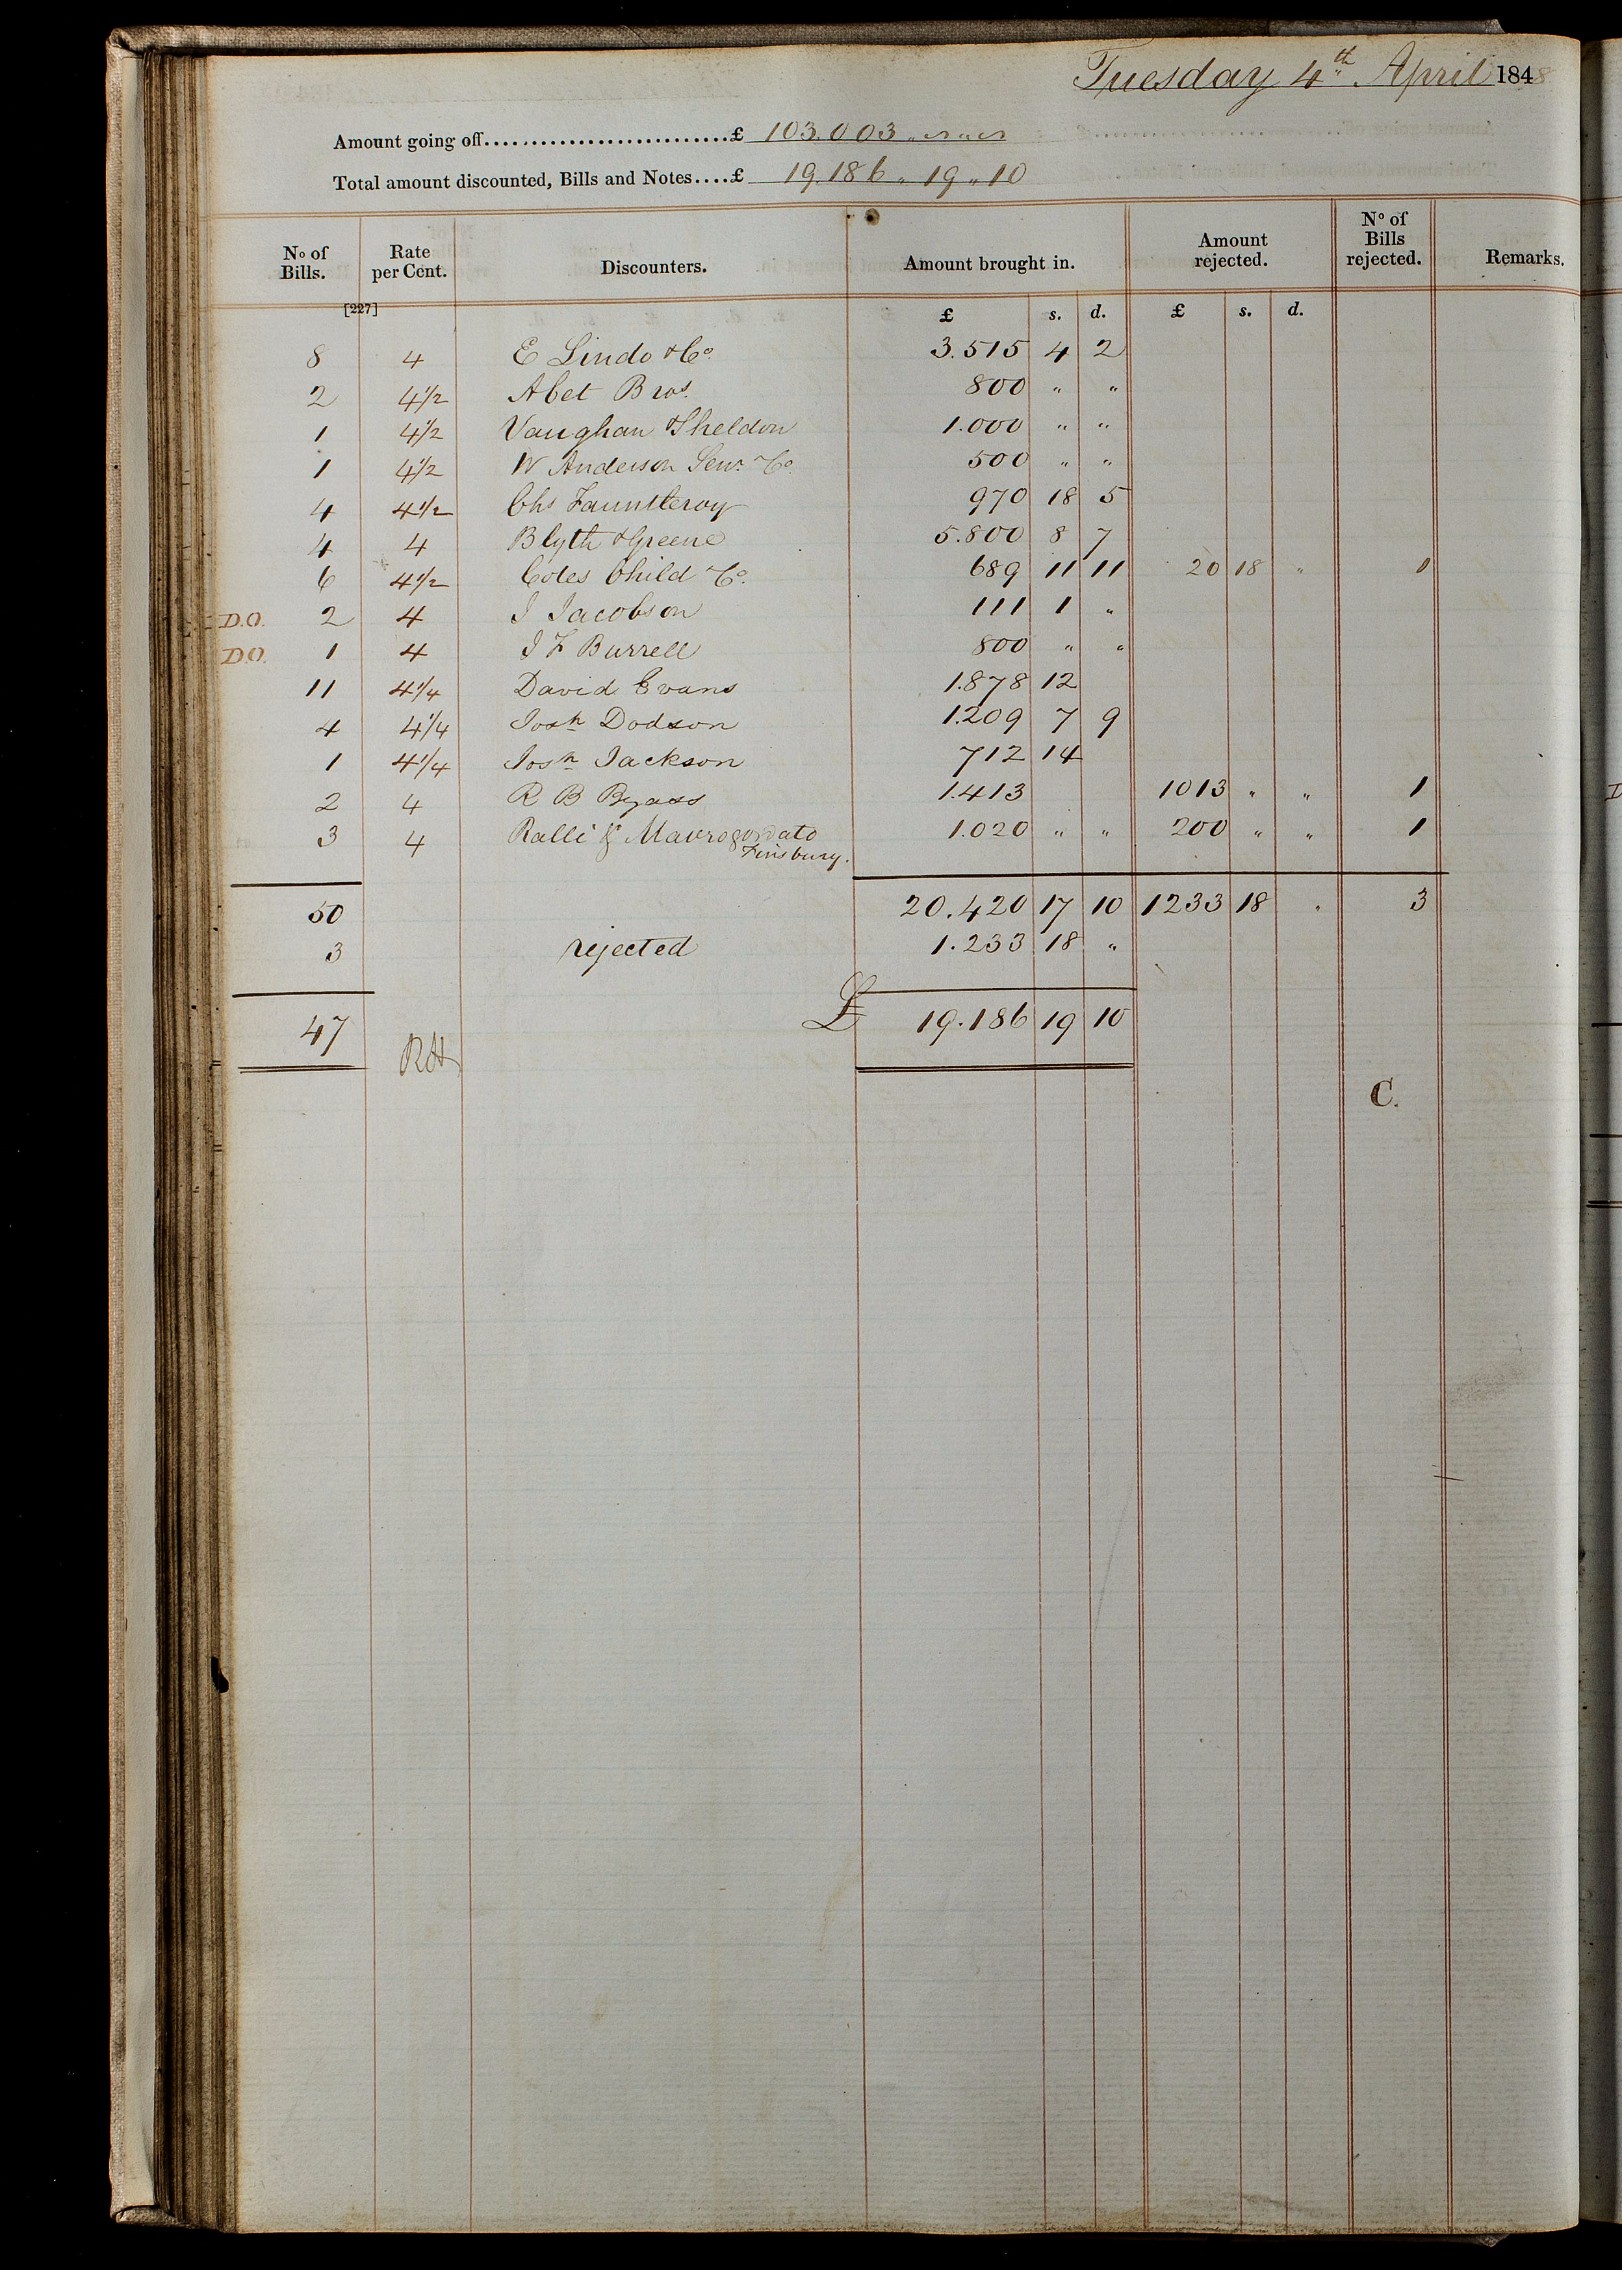 Tuesday 4th April 1848
Amount going off...........................£ 103.003 „ – „ –
Total amount discounted, Bills and Notes....£ 19.186 „ 19 „ 10
No of Bills. Rate per Cent. Discounters. Amount brought in. Amount rejected. No of Bills rejected. Remarks.
[227] £ s. d. £ s. d.
8 4 E Lindo & Co. 3.515 4 2
2 4½ Abet Bros. 800 „ „
1 4½ Vaughan & Sheldon 1.000 „ „
1 4½ W Anderson Senr & Co. 500 „ „
4 4½ Chs Fauntleroy 970 18 5
4 4 Blyth & Greene 5.800 8 7
6 4½ Coles Child & Co. 689 11 11 20 18 „ 1
D.O. 2 4 J Jacobson 111 1 „
D.O. 1 4 J F Burrell 800 „ „
11 4¼ David Evans 1.878 12
4 4¼ Josh Dodson 1.209 7 9
1 4¼ Josh Jackson 712 14
2 4 R B Byass 1.413 1013 „ „ 1
3 4 Ralli & Mavrogordato 1.020 „ „ 200 „ „ 1
Finsbury.
50 20.420 17 10 1233 18 „ 3
3 rejected 1.233 18 „
47 £ 19.186 19 10
RH
C.